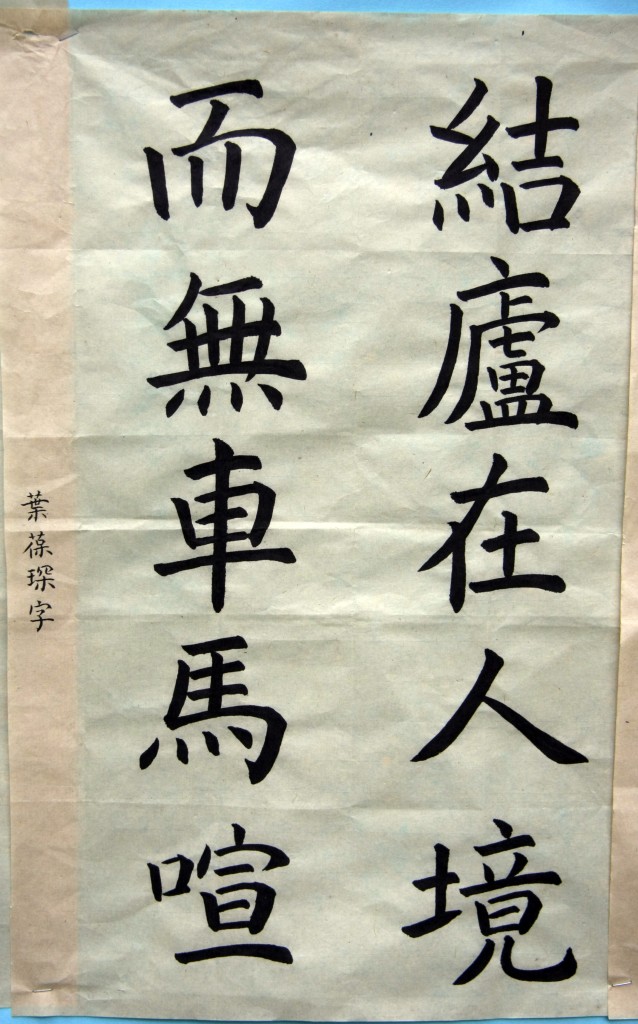 結廬在人境
而無車馬喧
葉葆琛字